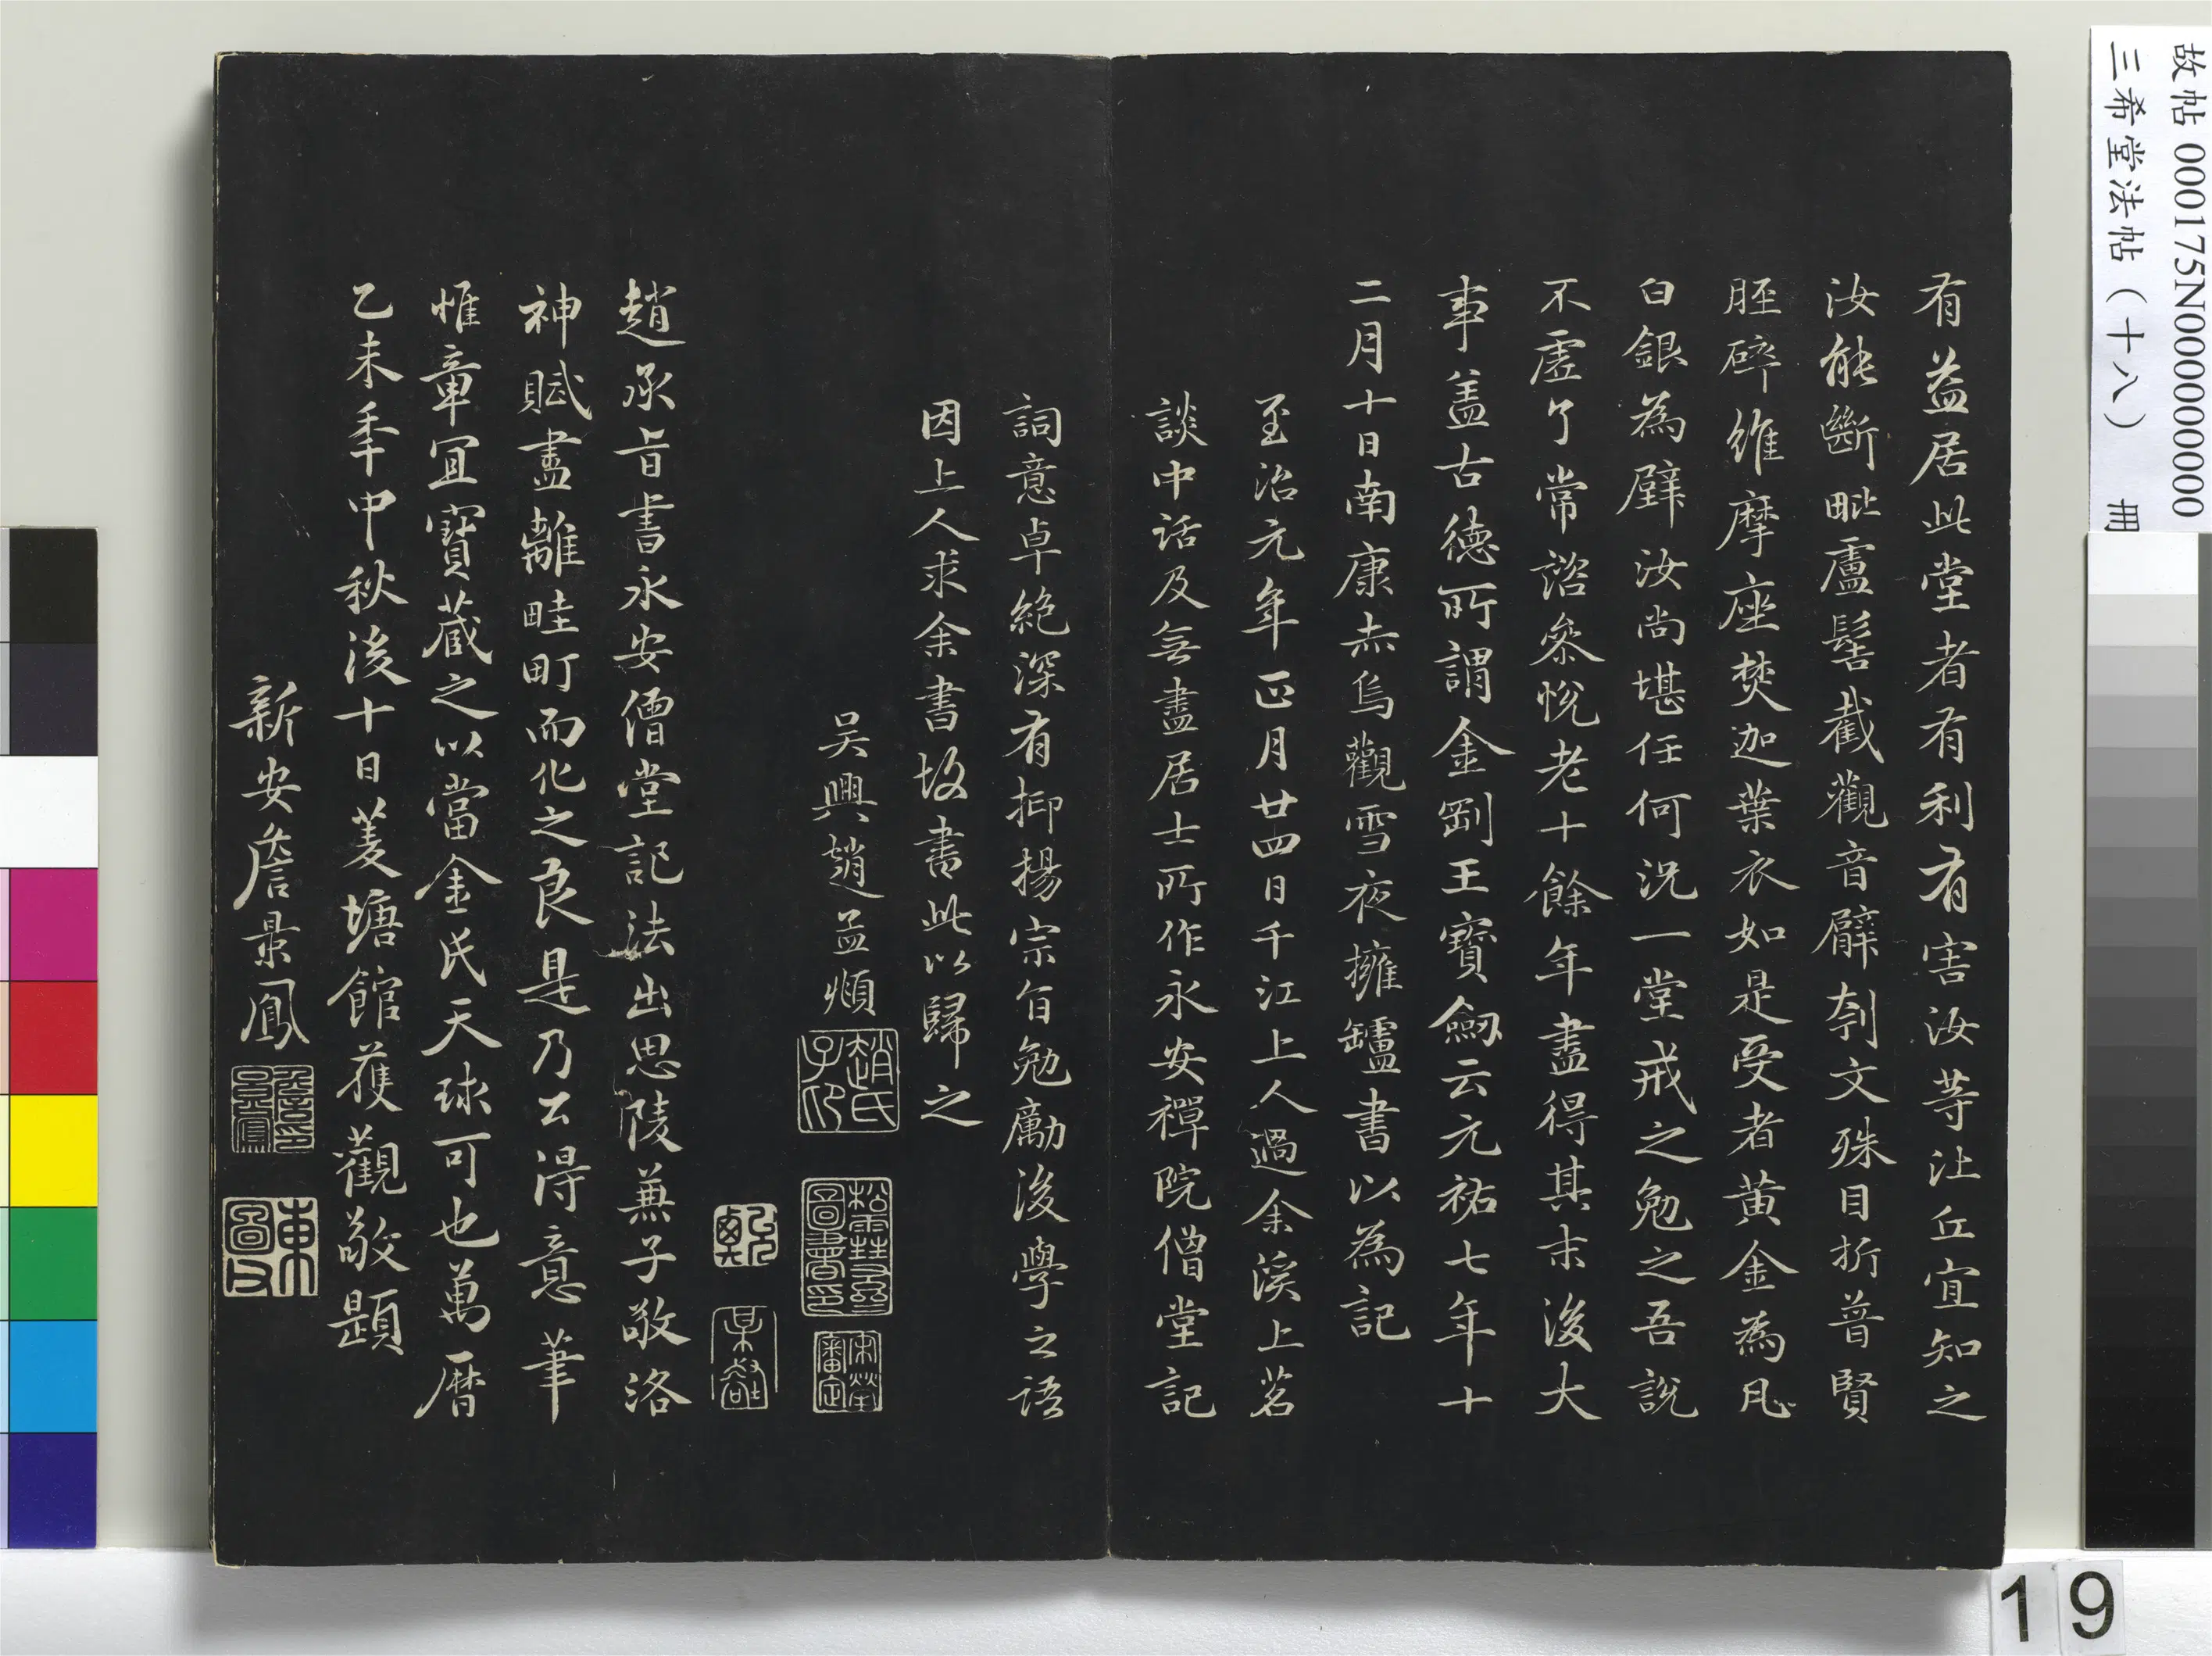 故帖 000175N000000000
三希堂法帖（十八） 冊
有益居此堂者有利有害汝等比丘宜知之
汝能斷毗盧髻截觀音臂刳文殊目折普賢
脛碎維摩座焚迦葉衣如是受者黃金為瓦
白銀為壁汝尚堪任何況一堂戒之勉之吾說
不虛了常諮參悅老十餘年盡得其末後大
事盖古德所謂金剛王寶劒云元祐七年十
二月十日南康赤烏觀雪夜擁罏書以為記
至治元年正月廿四日千江上人過余溪上茗
談中話及無盡居士所作永安禪院僧堂記
詞意卓絕深有抑揚宗旨勉勵後學之語
因上人求余書故書此以歸之
吳興趙孟頫
趙氏子印
松雪齋圖書印
宋犖審定
趙承旨書永安僧堂記法出思陵兼子敬洛
神賦盡離畦町而化之良是乃公得意筆
惟章宜寶蔵之以當金氏天球可也萬曆
乙未季中秋後十日菱塘館獲觀敬題
新安詹景鳳
詹景鳳印
東圖父
19